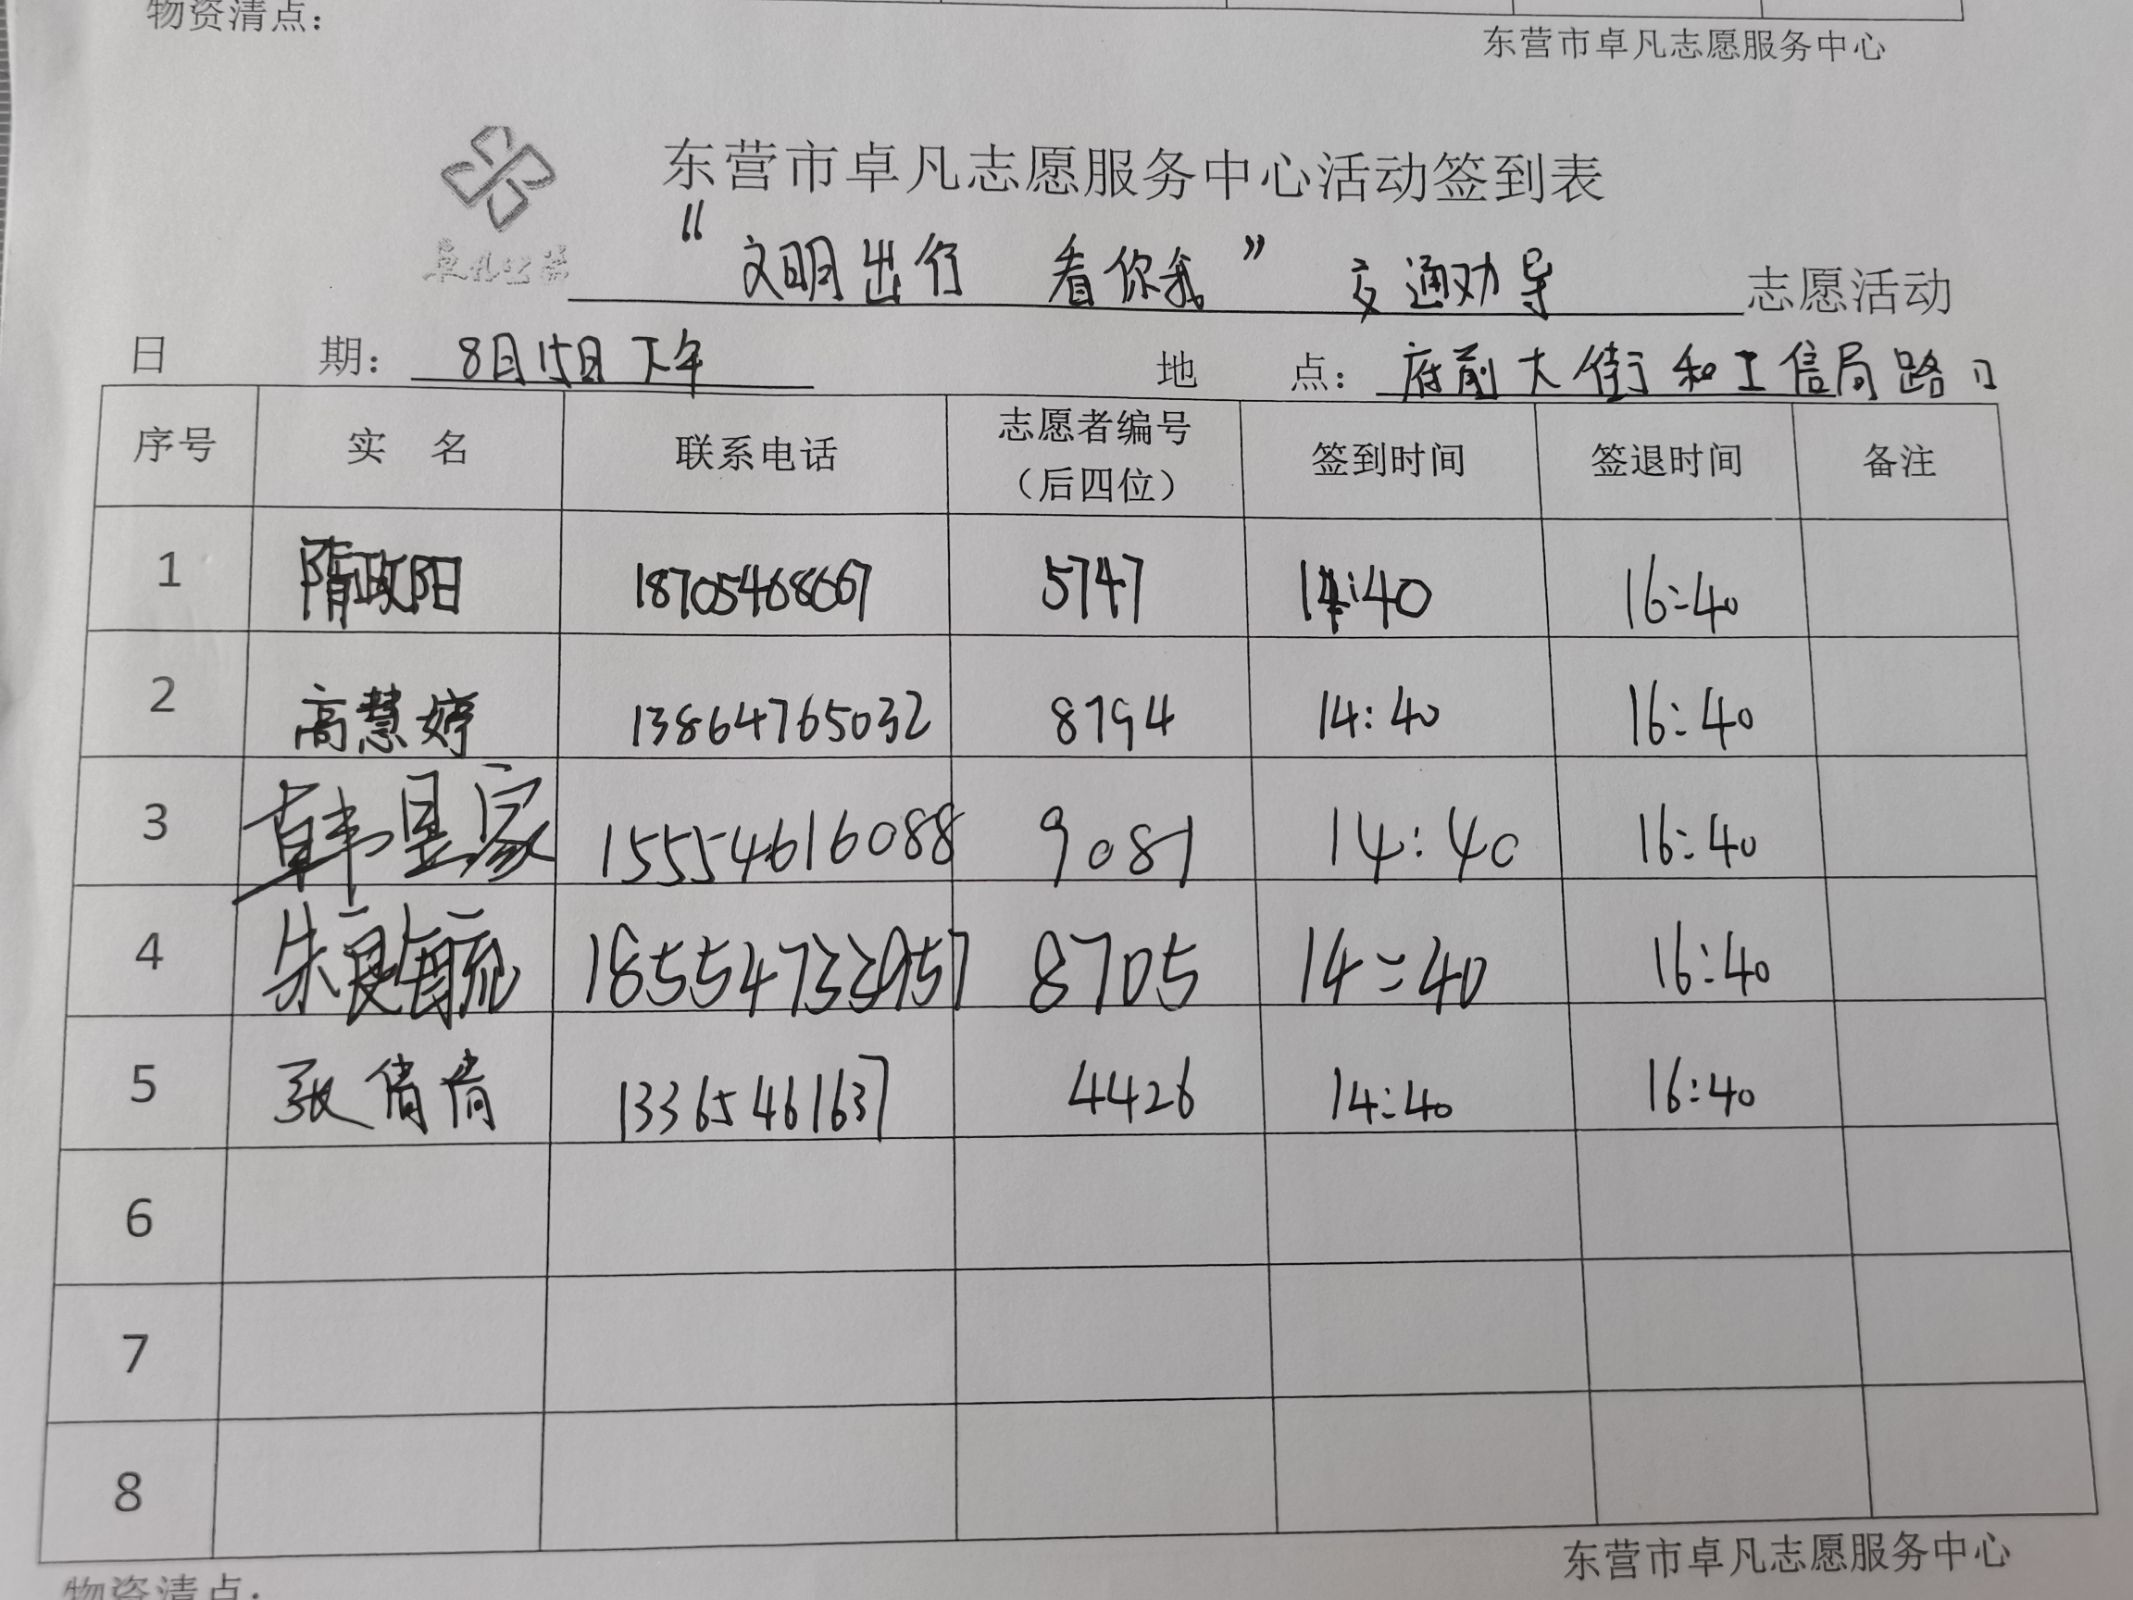 物资清点：
东营市卓凡志愿服务中心
东营市卓凡志愿服务中心活动签到表
“文明出行 看你我” 交通劝导 志愿活动
日 期： 8月15日下午 地 点： 府前大街和工信局路口
序号 实 名 联系电话 志愿者编号（后四位） 签到时间 签退时间 备注
1 隋政阳 18705468667 5747 14:40 16:40
2 高慧婷 13864765032 8794 14:40 16:40
3 韩昱家 15554616088 9081 14:40 16:40
4 朱良毓 18554733957 8705 14:40 16:40
5 张倩倩 13365461637 4426 14:40 16:40
6
7
8
东营市卓凡志愿服务中心
物资清点：